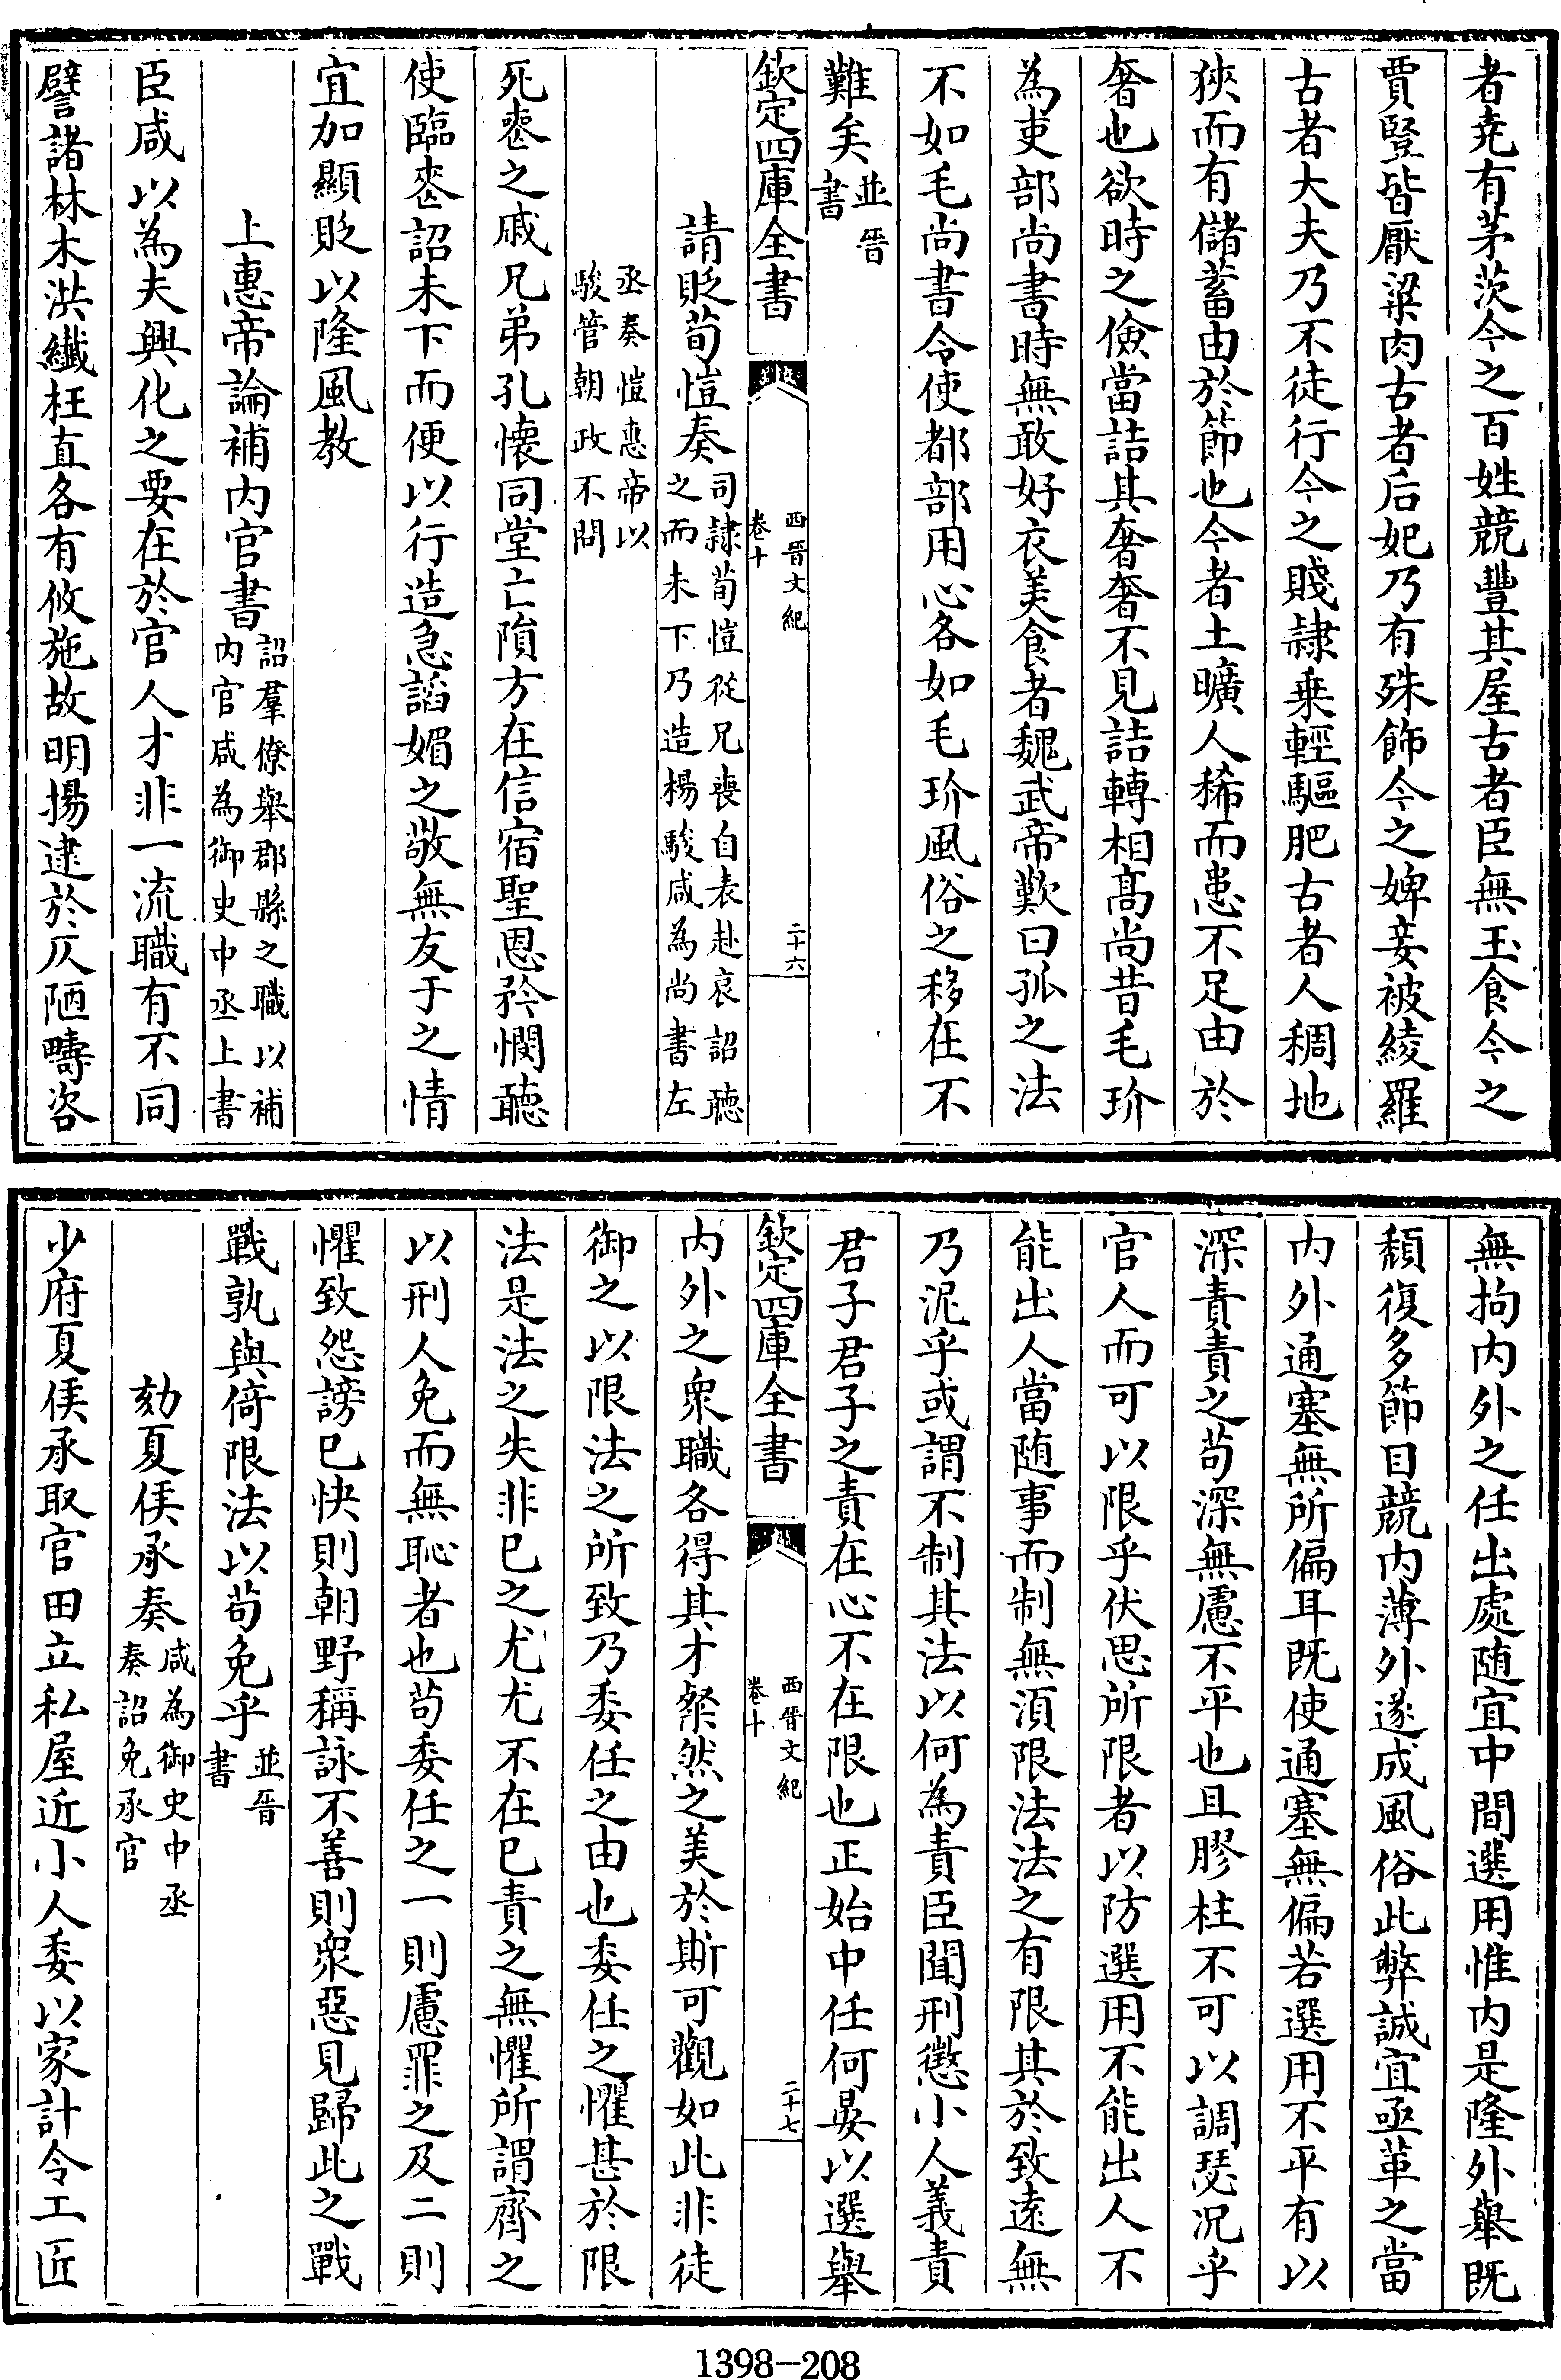 者堯有茅茨今之百姓競豐其屋古者臣無玉食今之
賈豎皆厭粱肉古者后妃乃有殊飾今之婢妾被綾羅
古者大夫乃不徒行今之賤隷乗輕驅肥古者人稠地
狹而有儲蓄由於節也今者土曠人稀而患不足由於
奢也欲時之儉當詰其奢奢不見詰轉相髙尚昔毛玠
為吏部尚書時無敢好衣美食者魏武帝歎曰孤之法
不如毛尚書令使都部用心各如毛玠風俗之移在不
難矣並晉書
欽定四庫全書
西晉文紀
卷十
二十六
請貶荀愷奏司隷荀愷從兄喪自表赴哀詔聽
之而未下乃造楊駿咸為尚書左
丞奏愷惠帝以
駿管朝政不問
死喪之戚兄弟孔懐同堂亡隕方在信宿聖恩矜憫聽
使臨喪詔未下而便以行造急諂媚之敬無友于之情
宜加顯貶以隆風教
上惠帝論補内官書詔羣僚舉郡縣之職以補
内官咸為御史中丞上書
臣咸以為夫興化之要在於官人才非一流職有不同
譬諸林木洪纎枉直各有攸施故明揚逮於仄陋疇咨
無拘内外之任出處随宜中間選用惟内是隆外舉既
頽復多節目競内薄外遂成風俗此弊誠宜亟革之當
内外通塞無所偏耳既使通塞無偏若選用不平有以
深責責之苟深無慮不平也且膠柱不可以調瑟况乎
官人而可以限乎伏思所限者以防選用不能出人不
能出人當随事而制無湏限法法之有限其於致逺無
乃泥乎或謂不制其法以何為責臣聞刑懲小人義責
君子君子之責在心不在限也正始中任何晏以選舉
欽定四庫全書
西晉文紀
卷十
二十七
内外之衆職各得其才粲然之美於斯可觀如此非徒
御之以限法之所致乃委任之由也委任之懼甚於限
法是法之失非已之尤尤不在已責之無懼所謂齊之
以刑人免而無恥者也苟委任之一則慮罪之及二則
懼致怨謗已快則朝野稱詠不善則衆惡見歸此之戰
戰孰與倚限法以苟免乎並晉書
劾夏侯承奏咸為御史中丞
奏詔免承官
少府夏侯承取官田立私屋近小人委以家計令工匠
1398-208